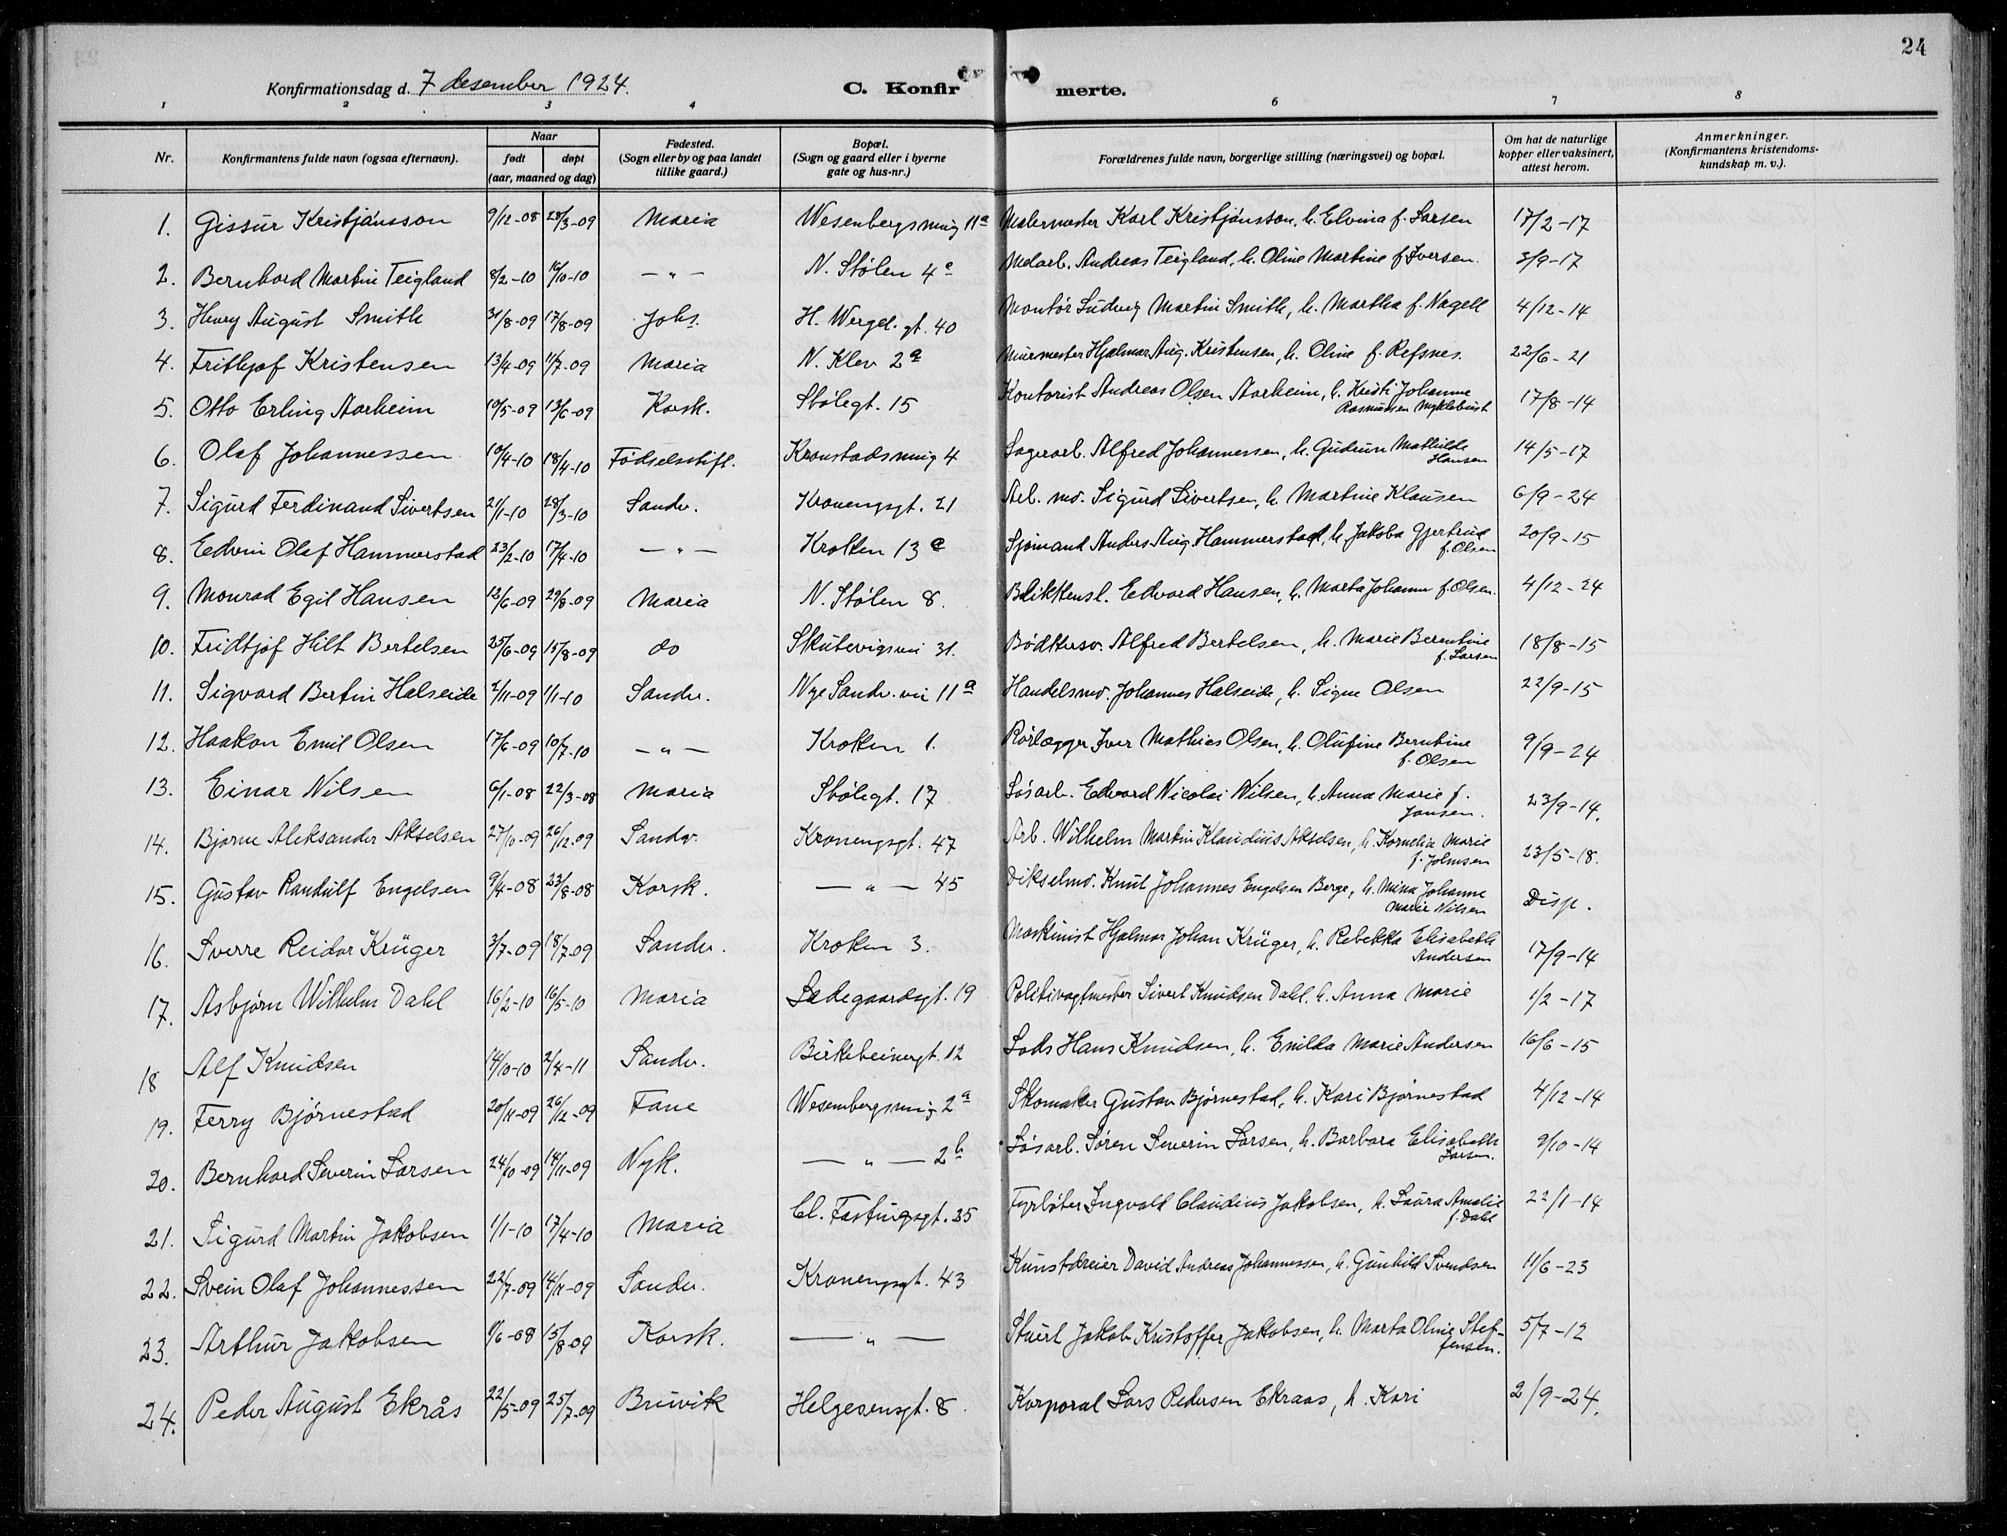 24
Konfirmationsdag d. 7 desember 1924.
C. Konfirmerte.
1 2 3 4 6 7 8
Nr.
Konfirmantens fulde navn (ogsaa efternavn).
Naar
født
døpt
(aar, maaned og dag)
Fødested.
(Sogn eller by og paa landet
tillike gaard.)
Bopæl.
(Sogn og gaard eller i byerne
gate og hus-nr.)
Forældrenes fulde navn, borgerlige stilling (næringsvei) og bopæl.
Om hat de naturlige
kopper eller vaksinert,
attest herom.
Anmerkninger.
(Konfirmantens kristendoms-
kundskap m. v.).
1. Gissur Kristjánsson 9/12-08 28/3-09 Maria Wesenbergsmug 11a Malermester Karl Kristjánsson, h. Elvina f. Larsen 17/2-17
2. Bernhard Martin Teigland 8/2-10 16/10-10 — " — N. Stølen 4 Andreas Teigland, h. Oline Martine f Iversen. 3/9-17
3. Henry August Smith 31/8-09 Johs. H. Wergel. gt. 40 Montør Ludvig Martin Smith, h. Martha f. Nagell 4/12-14
4. Frithjof Kristensen 13/4-09 11/7-09 Maria N. Klev 2a Murmester Hjalmar Aug. Kristensen, h. Oline f. Refsnes. 22/6-21
5. Otto Erling Aarheim 10/5-09 13/6-09 Korsk. Stølegt. 15 Kontorist Andreas Olsen Aarheim, h. Kristi Johanne
Rasmussen Myklebust 17/8-14
6. Olaf Johannessen 10/4-10 18/4-10 Fødselsstift. Kronstadsmug 4 Lagerarb. Alfred Johannessen, h. Gudrun Mathilde
Hansen 14/5-17
7. Sigurd Ferdinand Sivertsen 21/1-10 28/3-10 Sandv. Kronengsgt. 21 Arb. Sigurd Sivertsen, h. Martine Klausen 6/9-24
8. Edvin Olaf Hammerstad 23/2-10 17/4-10 — " — Kroken 13 Sjømand Anders Aug. Hammerstad, h. Jakoba Gjertrud
f. Olsen 20/9-15
9. Monrad Egil Hansen 13/6-09 29/8-09 Maria N. Stølen 8. Edvard Hansen, h. Marta Johanne f. Olsen. 4/12-24
10. Fridtjof Hilt Bertelsen 25/6-09 15/8-09 do Skutevigsvei 31. Bødkersv. Alfred Bertelsen, h. Marie Berentine
f. Larsen 18/8-15
11. Sigvard Bertin Halseide 2/11-09 1/1-10 Sandv. Nye Sandv. vei 11a Handelsmd. Johannes Halseide, h. Signe Olsen 22/9-15
12. Haakon Emil Olsen 17/6-09 10/7-10 — " — Kroken 1. Rørlægger Iver Mathias Olsen, h. Olufine Berntine
f. Olsen 9/9-24
13. Einar Nilsen 6/1-08 22/3-08 Maria Stølegt. 17 Løsarb. Edvard Nicolai Nilsen, h. Anna Marie f.
Jansen. 23/9-14.
14. Bjarne Aleksander Akselsen 27/10-09 26/12-09 Sandv. Kronengsgt. 47 Arb. Wilhelm Martin Klaudius Akselsen, h. Kornelia Marie
f. Johnsen 23/5-18.
15. Gustav Randulf Engelsen 9/4-08 23/8-08 Korsk. — " — 45 Knut Johannes Engelsen Berge, h. Mina Johanne
Marie Nilsen Disp.
16. Sverre Reidar Krüger 3/7-09 18/7-09 Sandv. Kroken 3. Maskinist Hjalmar Johan Krüger, h. Rebekka Elisabeth
Andersen 17/9-14
17. Asbjørn Wilhelm Dahl 16/2-10 16/5-10 Maria Ladegaardsgt. 19 Politivagtmester Sivert Knudsen Dahl, h. Anna Marie 1/2-17
18 Alf Knudsen 14/10-10 2/4-11 Sandv. Birkebeinergt. 12 Lods Hans Knudsen, h. Enilda Marie Andersen 16/6-15
19. Ferry Bjørnestad 20/11-09 26/12-09 Fane Wesenbergsmug 2a Skomaker Gustav Bjørnestad, h. Kari Bjørnestad 4/12-14
20. Bernhard Severin Larsen 24/10-09 14/11-09 Nyk. — " — 2b Løsarb. Søren Severin Larsen, h. Barbara Elisabeth
Larsen. 9/10-14
21. Sigurd Martin Jakobsen 1/1-10 17/4-10 Maria Cl. Fastingsgt. 25 Fyrbøter Ingvald Claudius Jakobsen, h. Laura Amalie
f. Dahl 22/1-14
22. Svein Olaf Johannessen 22/7-09 14/11-09 Sandv. Kronengsgt. 43 Kunstdreier David Andreas Johannessen, h. Gunhild Svendsen 11/6-23
23. Arthur Jakobsen 1/6-08 15/8-09 Korsk. — " — Stuert Jakob Kristoffer Jakobsen, h. Marta Oline Stef-
fensen. 5/7-12
24. Peder August Ekrås 22/5-09 25/7-09 Bruvik Helgesensgt. 8. Korporal Lars Pedersen Ekraas, h. Kari 2/9-24.